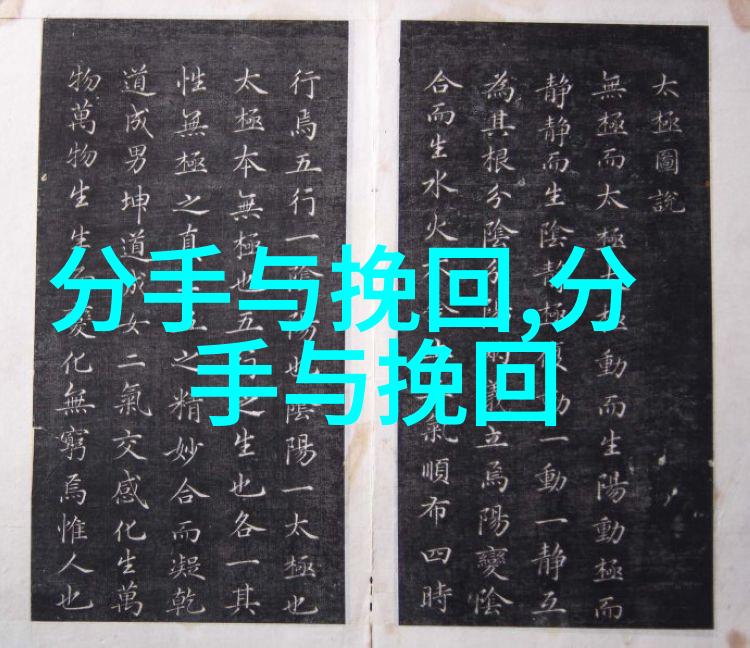 太極圖說
無極而太極太極動而生陽動極而
静静而生陰静極復動一動一静互
為其根分陰分陽立焉陽變陰
合而生水火氣順布四時
行焉五行一陰陽也陰陽一太極也
太極本無極也五行之生也各一其
性無極之真之精妙合而凝乾
道成男坤道成女二氣交感化生萬
物萬物生生而變化無窮焉惟人也
分手与挽回,分
手与挽回